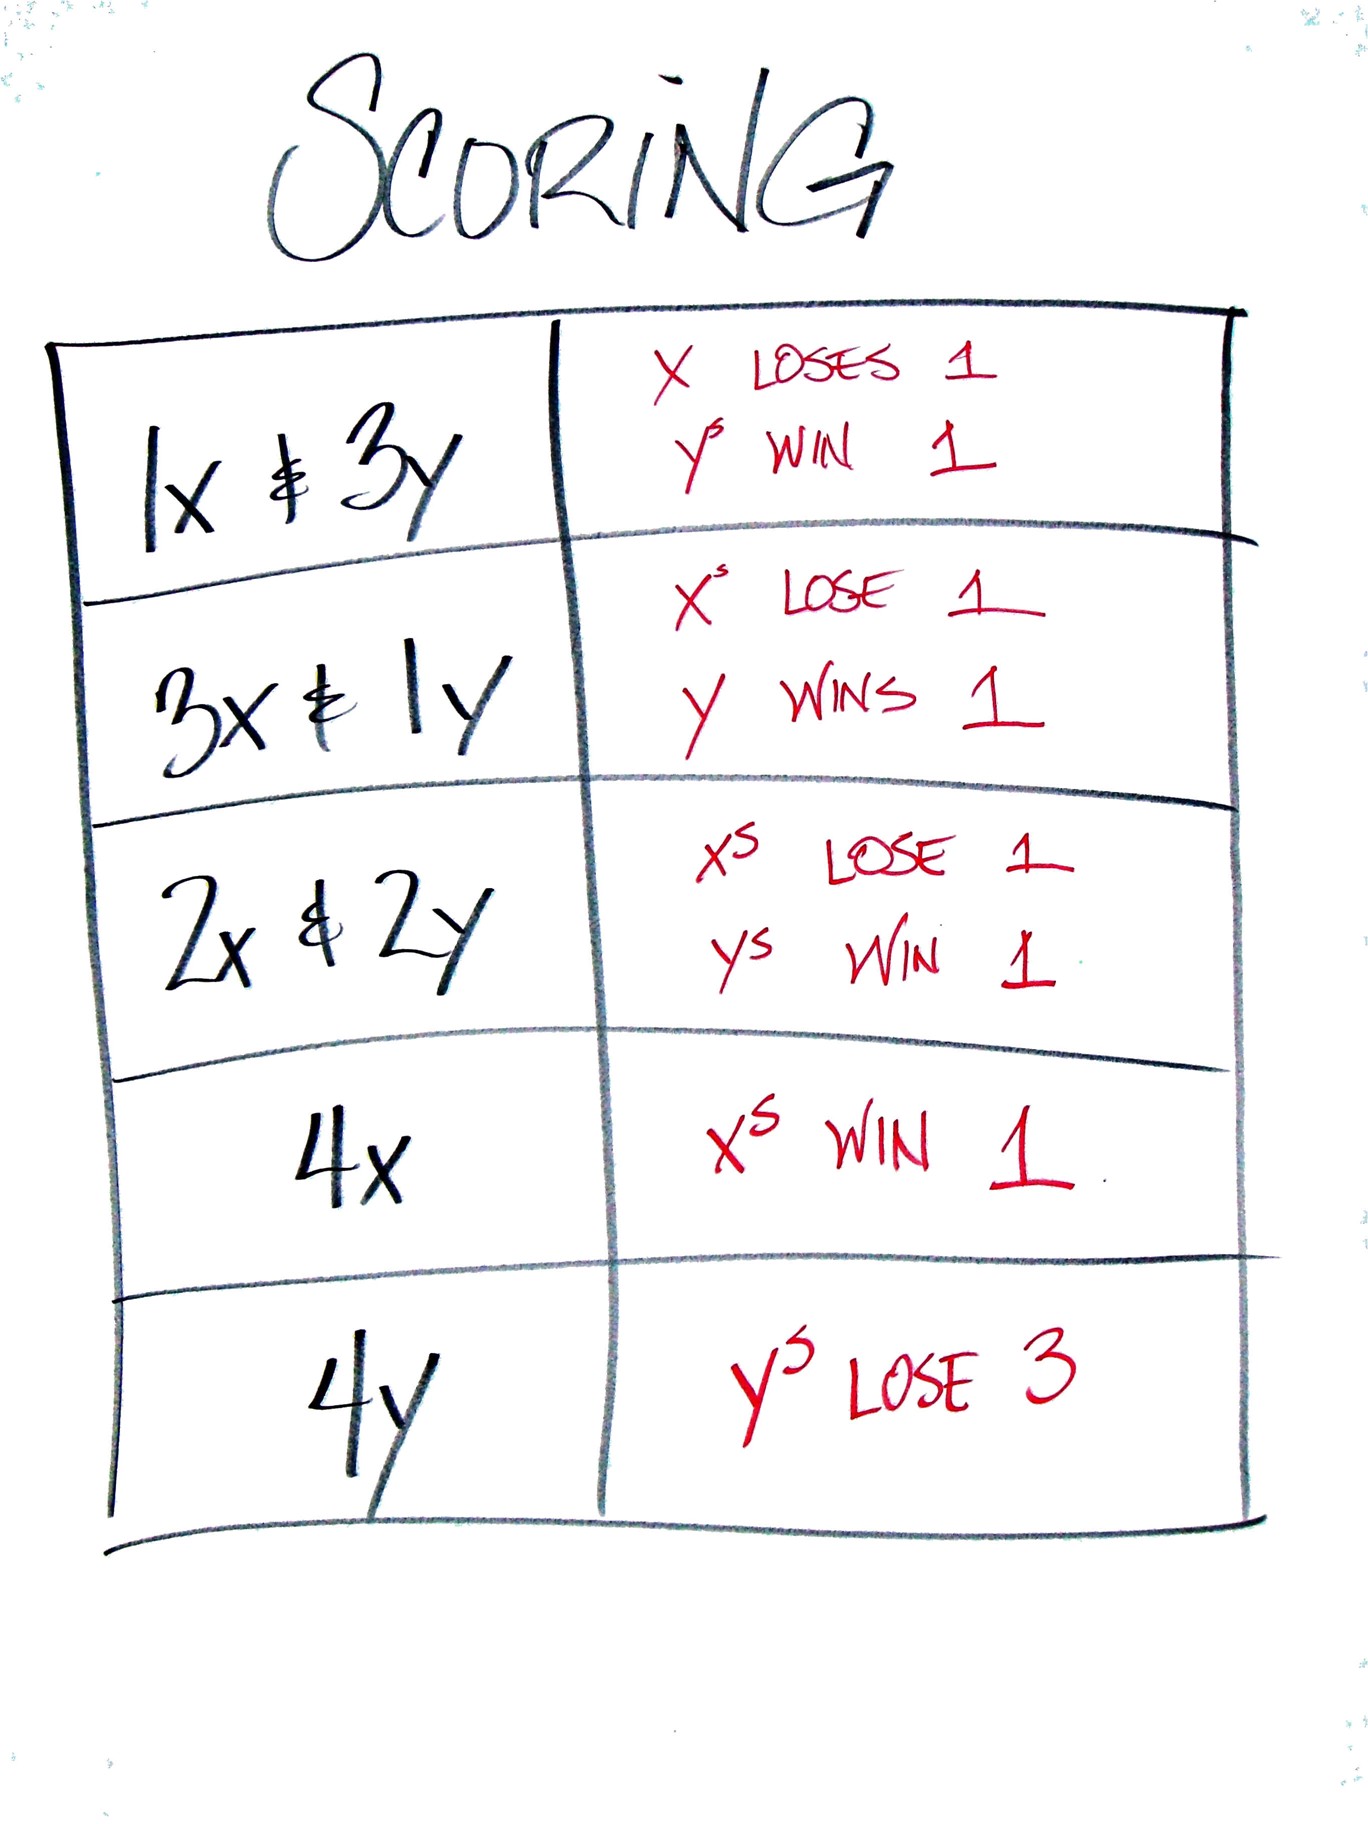 SCORING
1x & 3y
X LOSES 1
ys WIN 1
3x & 1y
Xs LOSE 1
y WINS 1
2x & 2y
xs LOSE 1
ys WIN 1
4x
xs WIN 1
4y
ys LOSE 3